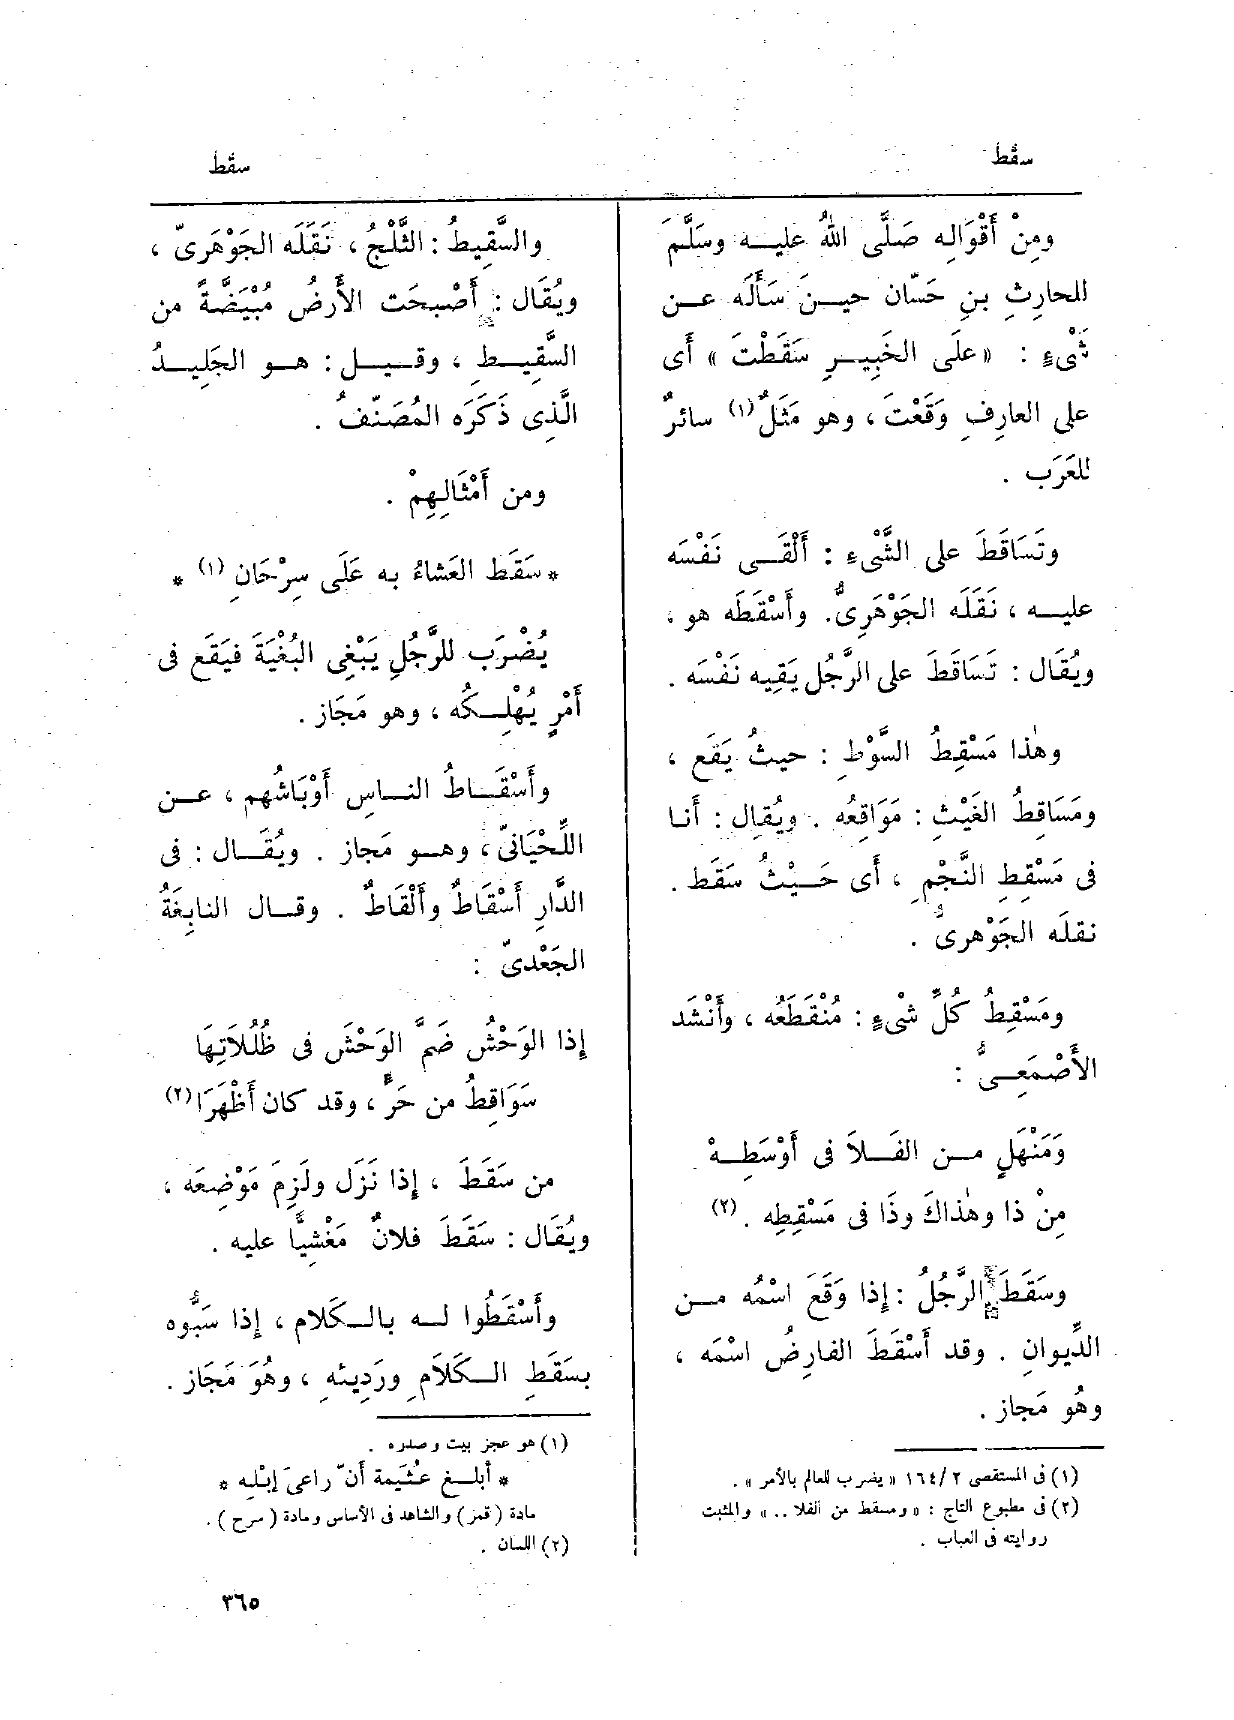 سقط
سقط
ومِنْ أَقْوَالِه صَلَّى اللهُ عليــه وسَلَّمَ
للحارِثِ بنِ حَسّان حيــنَ سَأَلَه عــن
شَىْءٍ : « علَى الخَبِيــرِ سَقَطْتَ » أَى
على العارِفِ وَقَعْتَ ، وهو مَثَلٌ (١) سائرٌ
للعَرَب .
وتَسَاقَطَ على الشَّىْءِ : أَلْقَــى نَفْسَه
عليــه ، نَقَلَه الجَوْهَرِىُّ. وأَسْقَطَه هو ،
ويُقَال : تَسَاقَطَ على الرَّجُل يَقِيه نَفْسَه .
وهٰذا مَسْقِطُ السَّوْطِ : حيثُ يَقَع ،
ومَسَاقِطُ الغَيْثِ : مَوَاقِعُه . ويُقال : أَنــا
فى مَسْقِطِ النَّجْمِ ، أَى حَــيْثُ سَقَط .
نقلَه الجَوْهرىُّ .
ومَسْقِطُ كُلِّ شْىءٍ : مُنْقَطَعُه ، وأَنْشَد
الأَصْمَعِــىُّ :
وَمَنْهَلٍ مــن الفَــلاَ فى أَوْسَطِــهْ
مِنْ ذا وهٰذاكَ وذَا فى مَسْقِطِه . (٢)
وسَقَطَ الرَّجُلُ : إذا وَقَعَ اسْمُه مــن
الدِّيوانِ . وقد أَسْقَطَ الفارِضُ اسْمَه ،
وهُو مَجاز .
(١) فى المستقصى ٢/ ١٦٤ « يضرب للعالم بالأمر » .
(٢) فى مطبوع التاج : « ومسقط من الفلا .. » والمثبت
روايته فى العباب .
والسَّقِيطُ : الثَّلْجُ ، نَقَلَه الجَوْهَرِىّ ،
ويُقَال : أَصْبحَت الأَرضُ مُبْيَضَّةً من
السَّقِيــطِ ، وقــيــل : هــو الجَلِيــدُ
الَّذِى ذَكَرَه المُصَنّفُ .
ومن أَمْثَالِهِمْ .
* سَقَط العَشاءُ به عَلَى سِرْحَانِ (١) *
يُضْرَب للرَّجُلِ يَبْغِى البُغْيَةَ فيَقَع فى
أَمْرٍ يُهْلِــكُه ، وهو مَجَاز .
وأَسْقَــاطُ النــاسِ أَوْبَاشُهم ، عــن
اللِّحْيَانىّ ، وهــو مَجاز . ويُقَــال : فى
الدَّارِ أَسْقَاطٌ وأَلْقَاطٌ . وقــال النابِغَةُ
الجَعْدىّ :
إذا الوَحْشُ ضَمَّ الوَحْشَ فى ظُلُلاَتِهَا
سَوَاقِطُ من حَرٍّ ، وقد كان أَظْهَرَا (٢)
من سَقَطَ ، إذا نَزَل ولَزِمَ مَوْضِعَه ،
ويُقَال : سَقَطَ فلانٌ مَغْشِيًّا عليه .
وأَسْقَطُوا لــه بالــكَلام ، إذا سَبُّوه
بسَقَطِ الــكَلاَمِ ورَدِيئهِ ، وهُوَ مَجَاز .
(١) هو عجز بيت وصدره .
* أبلــغ عُثَيمة أنّ راعىَ إبْلِه *
مادة ( قمز ) والشاهد فى الأساس ومادة ( سرح ) .
(٢) اللسان .
٣٦٥